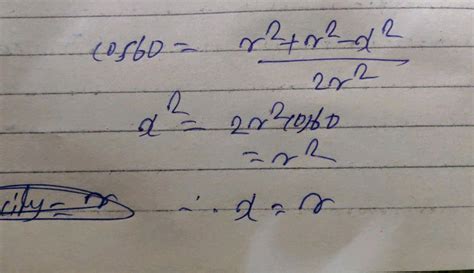 cos60 = r²+r²-x² / 2r²
x² = 2r²cos60
= r²
city = r ∴ x = r